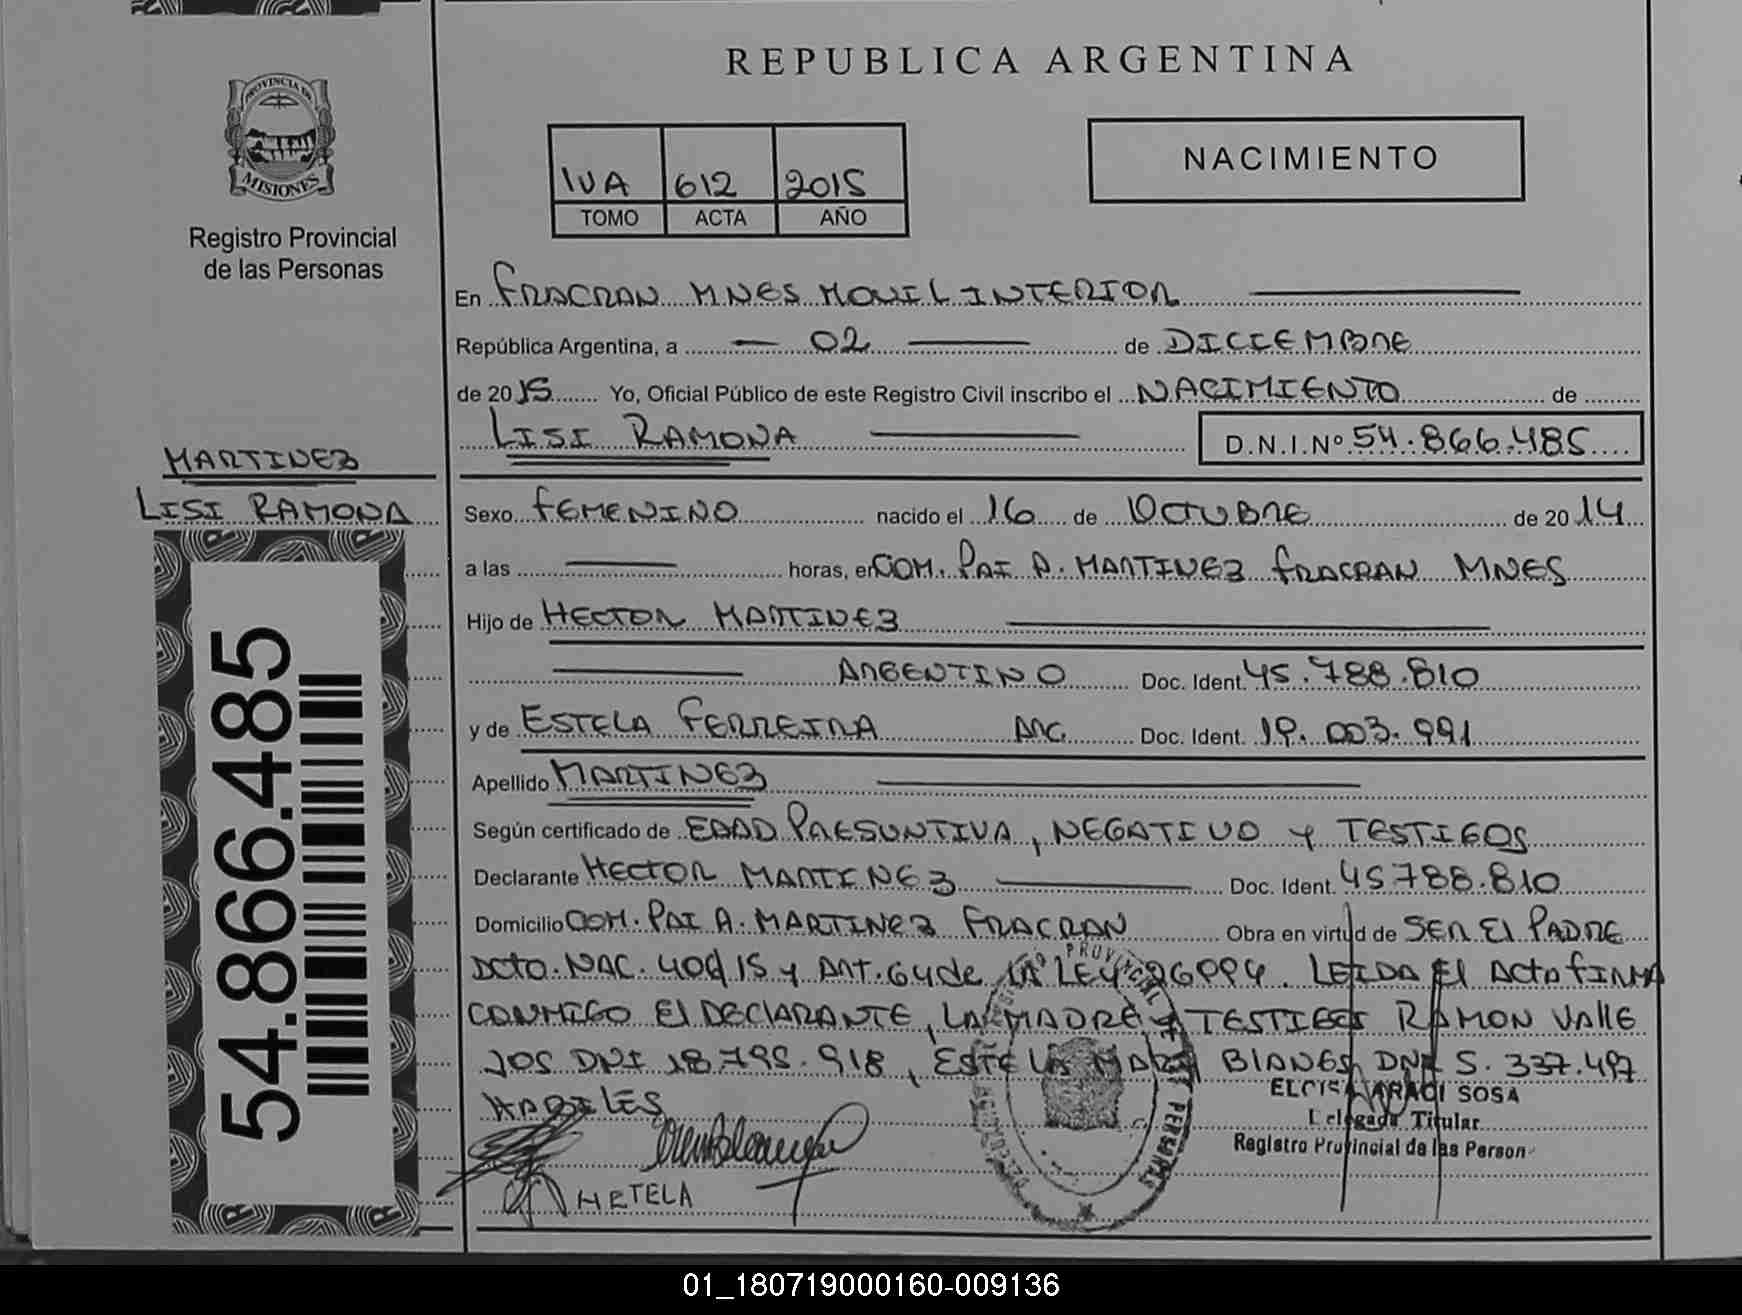 REPUBLICA ARGENTINA
PROVINCIA DE
MISIONES
Registro Provincial
de las Personas
IVA 612 2015
TOMO ACTA AÑO
NACIMIENTO
En FRACRAN MNES MOVIL INTERIOR
República Argentina, a 02 de DICIEMBRE
de 2015 Yo, Oficial Público de este Registro Civil inscribo el NACIMIENTO de
LISI RAMONA D.N.I.Nº 54.866.485
MARTINEZ
LISI RAMONA
54.866.485
Sexo FEMENINO nacido el 16 de OCTUBRE de 2014
a las horas, en COM. PAI A. MARTINEZ FRACRAN MNES
Hijo de HECTOR MARTINEZ
ARGENTINO Doc. Ident. 45.788.810
y de ESTELA FERREIRA ARG. Doc. Ident. 19.003.991
Apellido MARTINEZ
Según certificado de EDAD PRESUNTIVA, NEGATIVO Y TESTIGOS
Declarante HECTOR MARTINEZ Doc. Ident. 45788.810
Domicilio COM. PAI A. MARTINEZ FRACRAN Obra en virtud de SER El PADRE
DCTO. NAC. 406/15 y ART. 64 de LA LEY 26994. LEIDA El ACTA FIRMA
CONMIGO El DECLARANTE, LA MADRE y TESTIGOS RAMON VAllE
JOS DNI 18.795.918, ESTELA MARY BlANES DNI 5.337.497
HABILES
ELOISA ARACI SOSA
Delegada Titular
Registro Provincial de las Person
HETELA
01_180719000160-009136